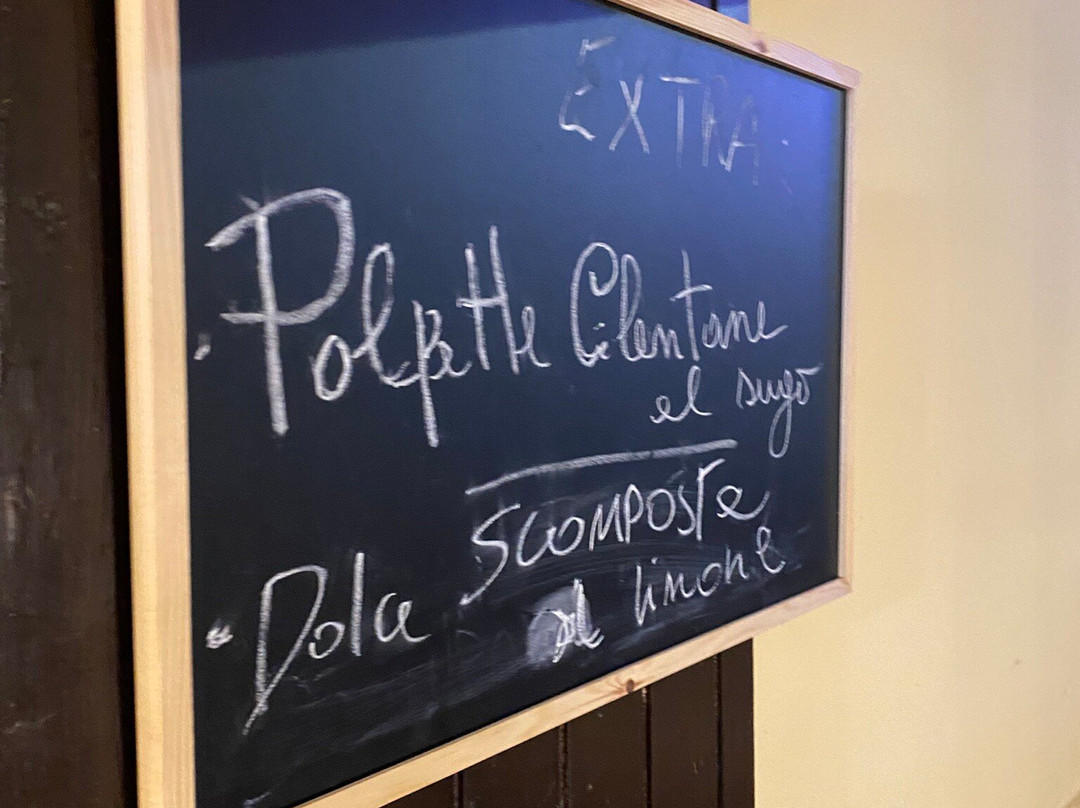 EXTRA
Polpette Cilentane
al sugo
Scomposta
Dolce al limone